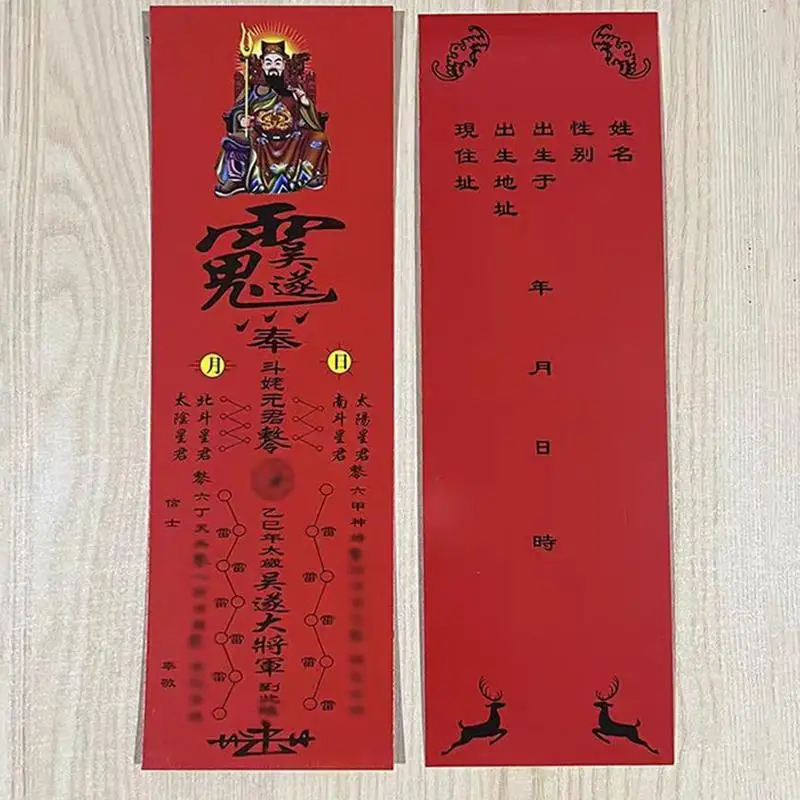 吳遂
奉
斗姥元君
日
月
太陽星君
南斗星君
北斗星君
太陰星君
六甲神
六丁天兵
雷
雷
雷
雷
雷
雷
雷
雷
雷
雷
乙巳年太歲吳遂大將軍到此鎮
信士 奉敬
姓名
性别
出生于 年 月 日 時
出生地址
現住址